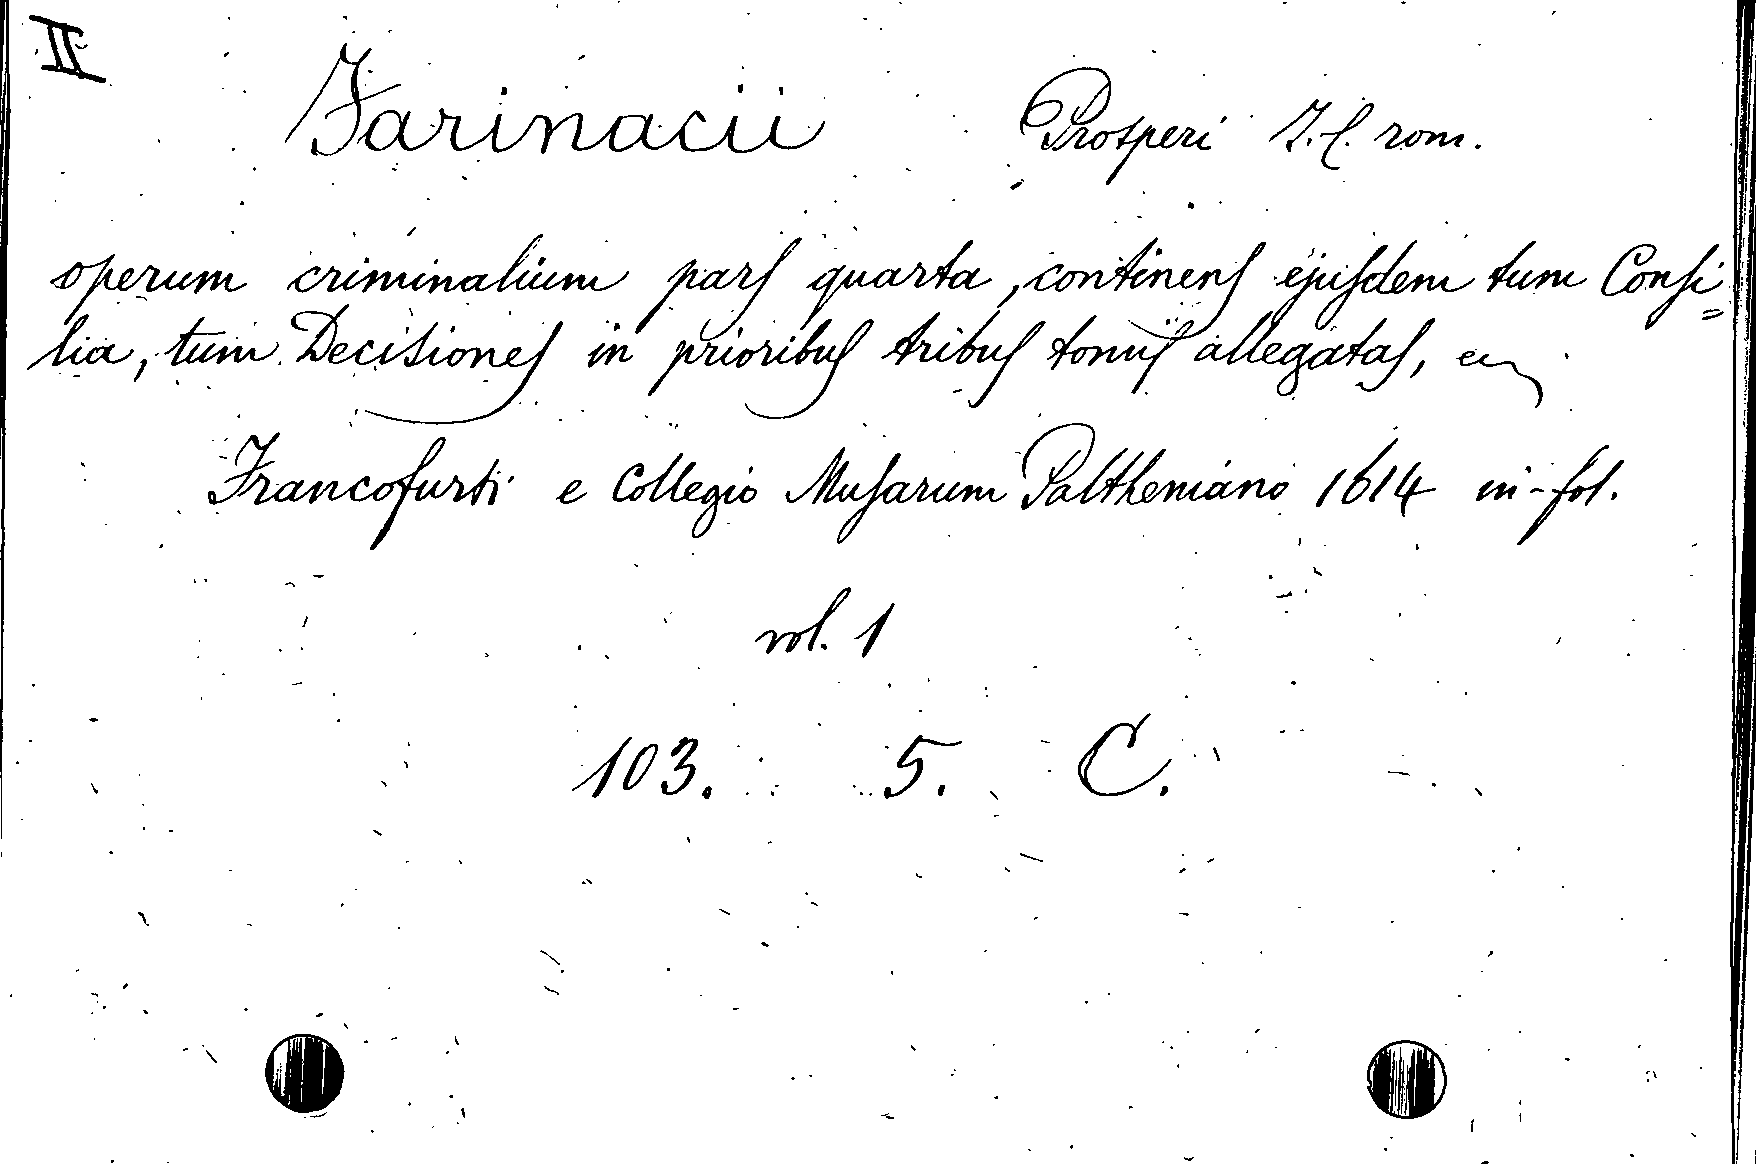 II
Farinacii Prosperi J. C. rom.
operum criminalium pars quarta, continens ejusdem tum Consi=
lia, tum Decisiones in prioribus tribus tomis allegatas,
Francofurti e Collegio Musarum Paltheniano 1614 in-fol.
vol. 1
103. 5. C.